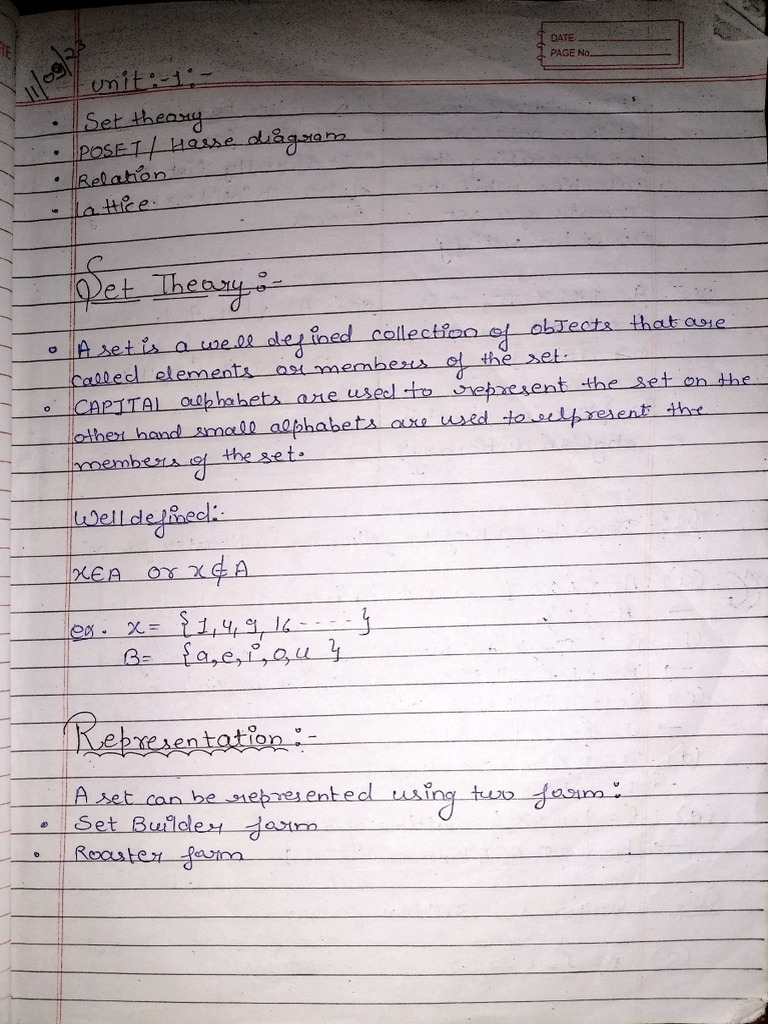 DATE
PAGE No.
11/09/23
unit:-1:-
• Set theory
• POSET / Hasse diagram
• Relation
• Lattice.
Set Theory:-
• A set is a well defined collection of objects that are
called elements or members of the set.
• CAPITAL alphabets are used to represent the set on the
other hand small alphabets are used to relpresent the
members of the set.
Well defined:-
x∈A or x∉A
ex. x = {1, 4, 9, 16 ---- }
B = {a, e, i, o, u }
Representation:-
A set can be represented using two farm:
• Set Builder farm
• Roaster farm